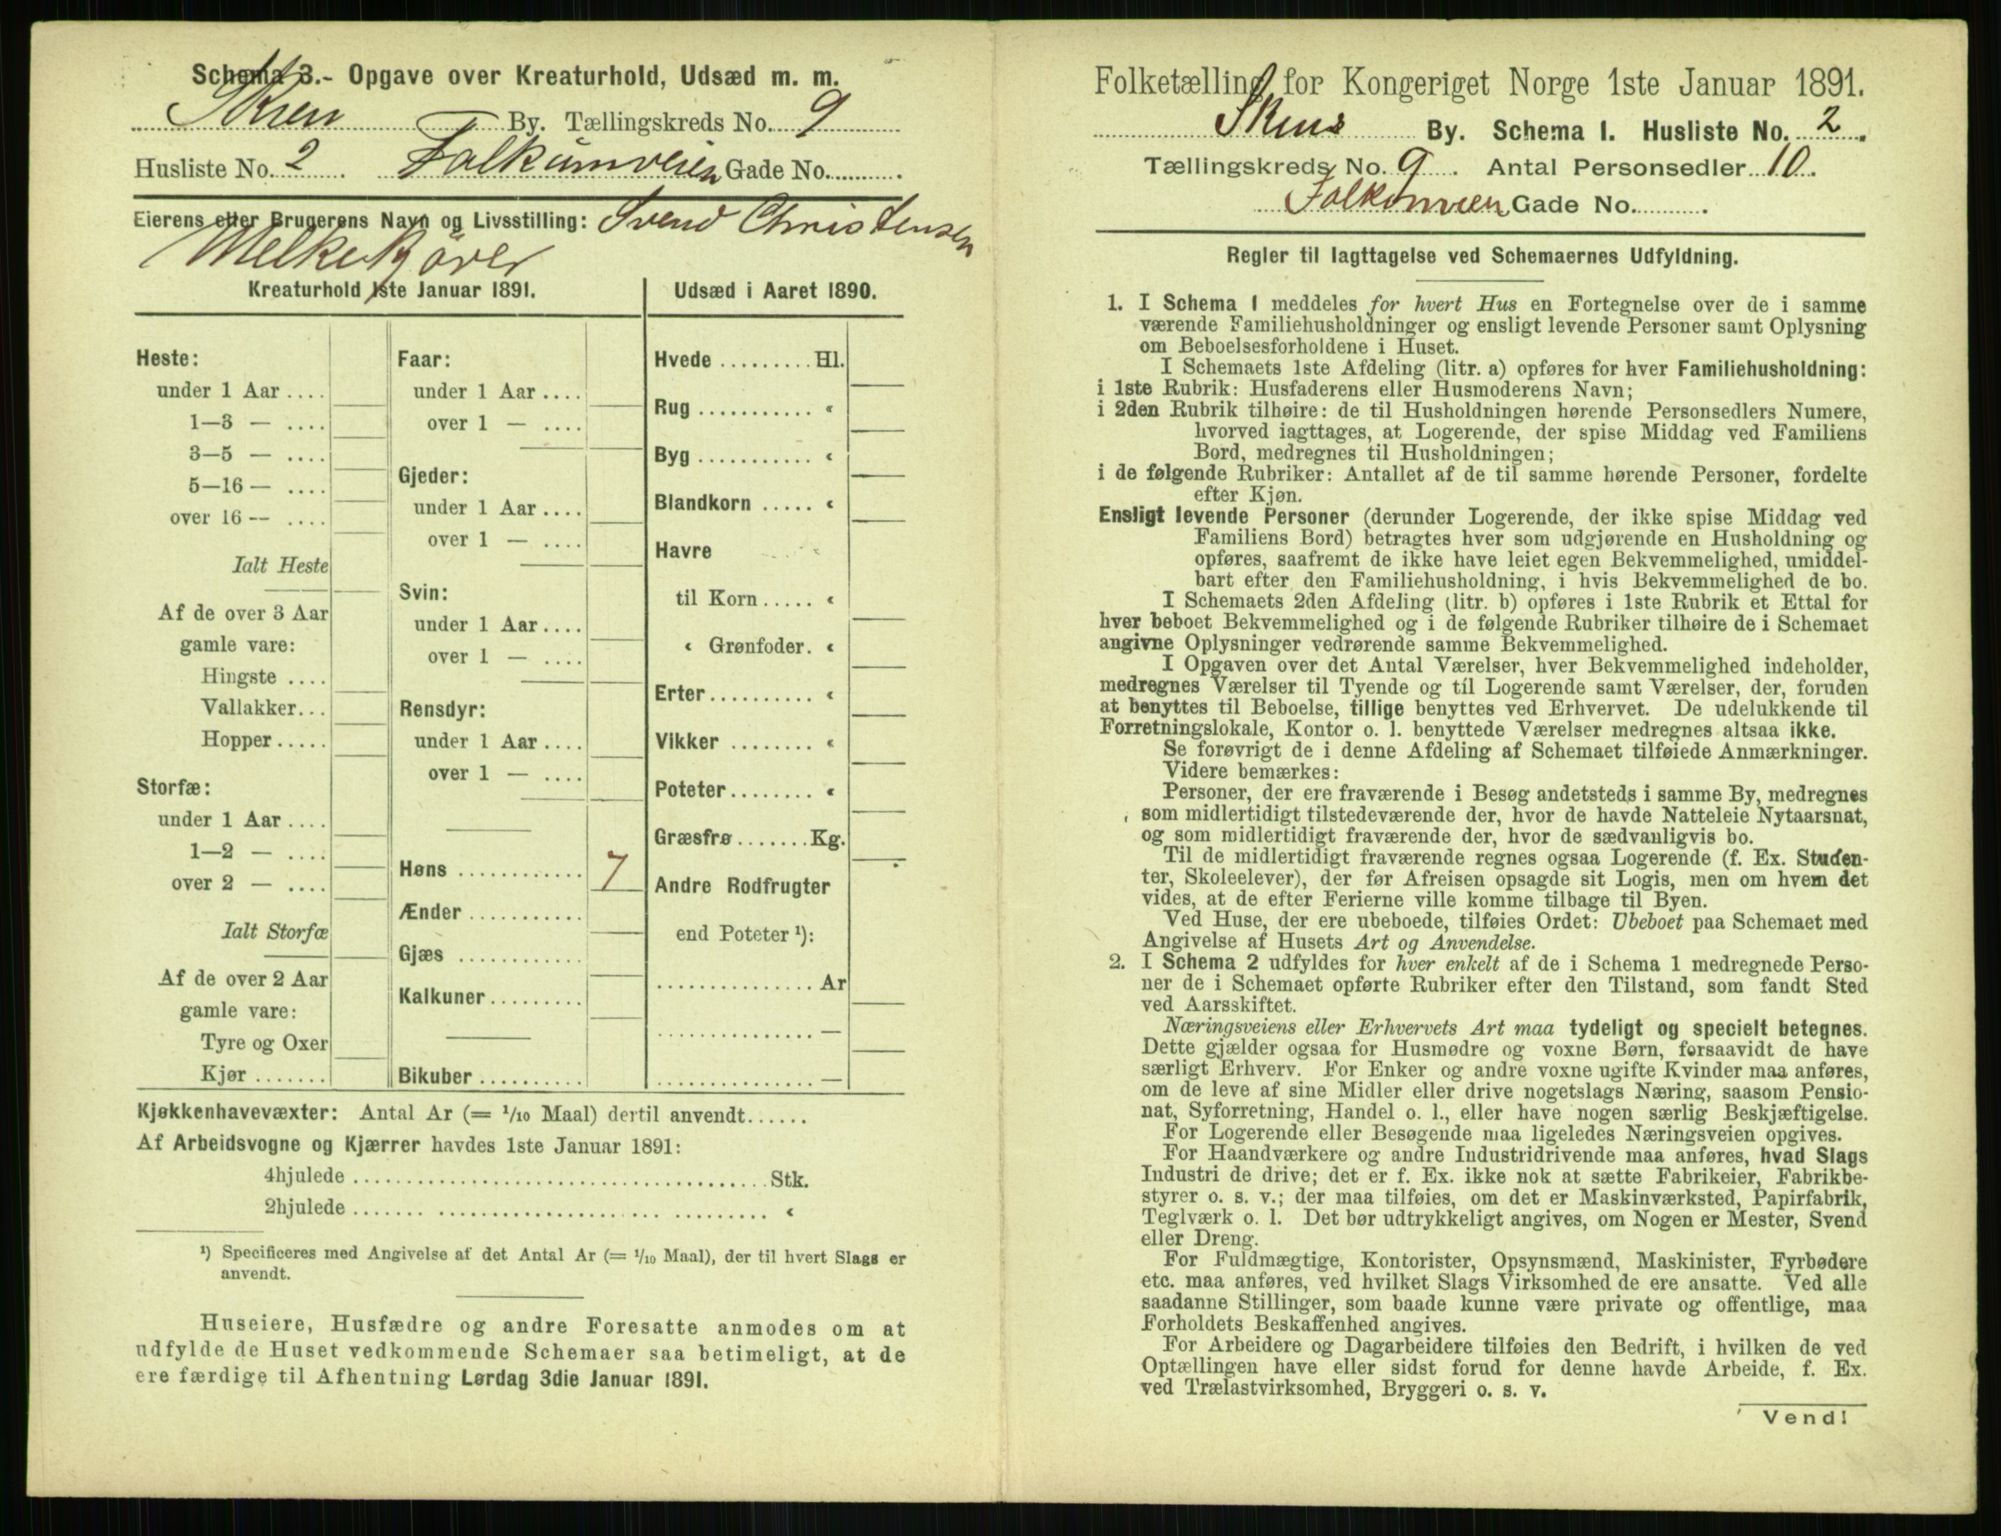 Schema 3.- Opgave over Kreaturhold, Udsæd m. m.
Skien By. Tællingskreds No. 9
Husliste No. 2. Falkumveien Gade No.
Eierens eller Brugerens Navn og Livsstilling: Svend Christensen
Melkekjører
Kreaturhold 1ste Januar 1891.
Heste:
under 1 Aar
1—3 —
3—5 —
5—16 —
over 16 —
Ialt Heste
Af de over 3 Aar
gamle vare:
Hingste
Vallakker
Hopper
Storfæ:
under 1 Aar
1—2 —
over 2 —
Ialt Storfæ
Af de over 2 Aar
gamle vare:
Tyre og Oxer
Kjør
Faar:
under 1 Aar
over 1 —
Gjeder:
under 1 Aar
over 1 —
Svin:
under 1 Aar
over 1 —
Rensdyr:
under 1 Aar
over 1 —
Høns 7
Ænder
Gjæs
Kalkuner
Bikuber
Udsæd i Aaret 1890.
Hvede Hl.
Rug «
Byg «
Blandkorn «
Havre
til Korn «
« Grønfoder. «
Erter «
Vikker «
Poteter «
Græsfrø Kg.
Andre Rodfrugter
end Poteter ¹):
Ar
—
—
Kjøkkenhavevæxter: Antal Ar (= ¹/₁₀ Maal) dertil anvendt
Af Arbeidsvogne og Kjærrer havdes 1ste Januar 1891:
4hjulede Stk.
2hjulede «
¹) Specificeres med Angivelse af det Antal Ar (= ¹/₁₀ Maal), der til hvert Slags er
anvendt.
Huseiere, Husfædre og andre Foresatte anmodes om at
udfylde de Huset vedkommende Schemaer saa betimeligt, at de
ere færdige til Afhentning Lørdag 3die Januar 1891.
Folketælling for Kongeriget Norge 1ste Januar 1891.
Skiens By. Schema I. Husliste No. 2.
Tællingskreds No. 9. Antal Personsedler 10.
Falkumveien Gade No.
Regler til Iagttagelse ved Schemaernes Udfyldning.
1. I Schema 1 meddeles for hvert Hus en Fortegnelse over de i samme
værende Familiehusholdninger og ensligt levende Personer samt Oplysning
om Beboelsesforholdene i Huset.
I Schemaets 1ste Afdeling (litr. a) opføres for hver Familiehusholdning:
i 1ste Rubrik: Husfaderens eller Husmoderens Navn;
i 2den Rubrik tilhøire: de til Husholdningen hørende Personsedlers Numere,
hvorved iagttages, at Logerende, der spise Middag ved Familiens
Bord, medregnes til Husholdningen;
i de følgende Rubriker: Antallet af de til samme hørende Personer, fordelte
efter Kjøn.
Ensligt levende Personer (derunder Logerende, der ikke spise Middag ved
Familiens Bord) betragtes hver som udgjørende en Husholdning og
opføres, saafremt de ikke have leiet egen Bekvemmelighed, umiddel-
bart efter den Familiehusholdning, i hvis Bekvemmelighed de bo.
I Schemaets 2den Afdeling (litr. b) opføres i 1ste Rubrik et Ettal for
hver beboet Bekvemmelighed og i de følgende Rubriker tilhøire de i Schemaet
angivne Oplysninger vedrørende samme Bekvemmelighed.
I Opgaven over det Antal Værelser, hver Bekvemmelighed indeholder,
medregnes Værelser til Tyende og til Logerende samt Værelser, der, foruden
at benyttes til Beboelse, tillige benyttes ved Erhvervet. De udelukkende til
Forretningslokale, Kontor o. l. benyttede Værelser medregnes altsaa ikke.
Se forøvrigt de i denne Afdeling af Schemaet tilføiede Anmærkninger.
Videre bemærkes:
Personer, der ere fraværende i Besøg andetsteds i samme By, medregnes
som midlertidigt tilstedeværende der, hvor de havde Natteleie Nytaarsnat,
og som midlertidigt fraværende der, hvor de sædvanligvis bo.
Til de midlertidigt fraværende regnes ogsaa Logerende (f. Ex. Studen-
ter, Skoleelever), der før Afreisen opsagde sit Logis, men om hvem det
vides, at de efter Ferierne ville komme tilbage til Byen.
Ved Huse, der ere ubeboede, tilføies Ordet: Ubeboet paa Schemaet med
Angivelse af Husets Art og Anvendelse.
2. I Schema 2 udfyldes for hver enkelt af de i Schema 1 medregnede Perso-
ner de i Schemaet opførte Rubriker efter den Tilstand, som fandt Sted
ved Aarsskiftet.
Næringsveiens eller Erhvervets Art maa tydeligt og specielt betegnes.
Dette gjælder ogsaa for Husmødre og voxne Børn, forsaavidt de have
særligt Erhverv. For Enker og andre voxne ugifte Kvinder maa anføres,
om de leve af sine Midler eller drive nogetslags Næring, saasom Pensio-
nat, Syforretning, Handel o. l., eller have nogen særlig Beskjæftigelse.
For Logerende eller Besøgende maa ligeledes Næringsveien opgives.
For Haandværkere og andre Industridrivende maa anføres, hvad Slags
Industri de drive; det er f. Ex. ikke nok at sætte Fabrikeier, Fabrikbe-
styrer o. s. v.; der maa tilføies, om det er Maskinværksted, Papirfabrik,
Teglværk o. l. Det bør udtrykkeligt angives, om Nogen er Mester, Svend
eller Dreng.
For Fuldmægtige, Kontorister, Opsynsmænd, Maskinister, Fyrbødere
etc. maa anføres, ved hvilket Slags Virksomhed de ere ansatte. Ved alle
saadanne Stillinger, som baade kunne være private og offentlige, maa
Forholdets Beskaffenhed angives.
For Arbeidere og Dagarbeidere tilføies den Bedrift, i hvilken de ved
Optællingen have eller sidst forud for denne havde Arbeide, f. Ex.
ved Trælastvirksomhed, Bryggeri o. s. v.
Vend!